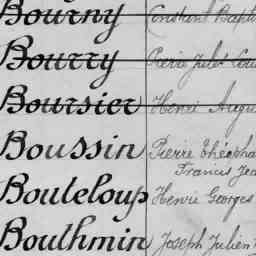 Bourny Constant Bapti
Bourry Pierre Jules Lou
Boursier Henri Augu
Boussin Pierre Théopha
Francis Jea
Bouteloup Henri Georges
Bouthmin Joseph Julien